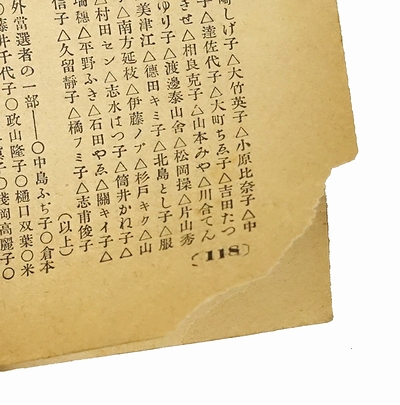 しげ子△大竹英子△小原比奈子△中
子△達佐代子△大町ちゑ子△吉田たつ
きせ△相良克子△山本みや△川合てん
ゆり子△渡邊泰山舎△松岡操△片山秀
美津江△德田キミ子△北島とし子△服
△南方延枝△伊藤ノブ△杉戸キク△山
△村田セン△志水はつ子△筒井かね子△
瑞穗△平野ふき△石田やゑ△關キイ子△
信子△久留靜子△橘フミ子△志甫俊子
(以上)
外當選者の一部――〇中島ふぢ子〇倉本
藤井千代子〇政山隆子〇樋口双葉〇米
子〇淺岡高麗子〇
(118)